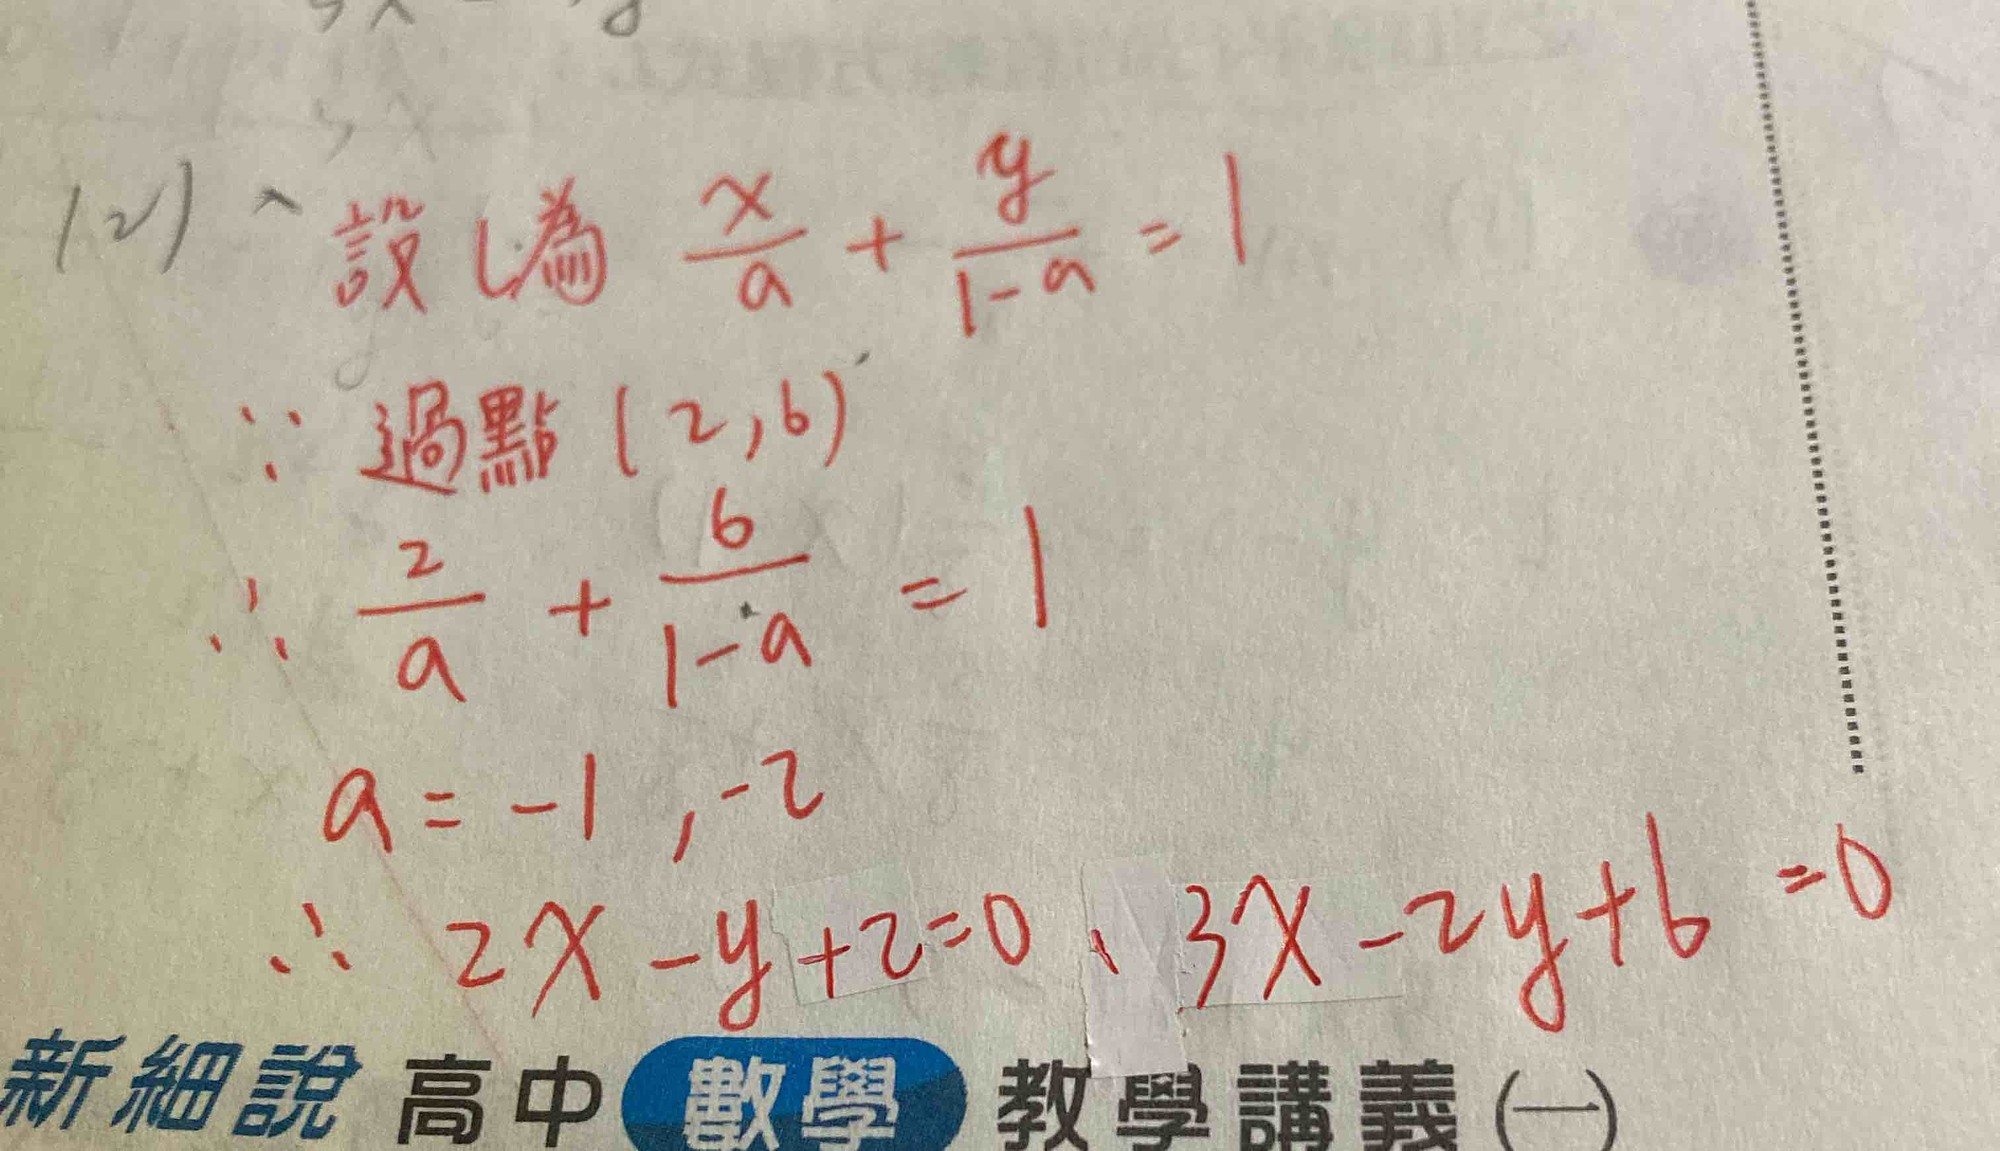 (2)、設L為 x/a + y/(1-a) = 1
∵ 過點(2,6)
∴ 2/a + 6/(1-a) = 1
a = -1, -2
∴ 2x-y+2=0、3x-2y+6=0
新細說 高中 數學 教學講義(一)